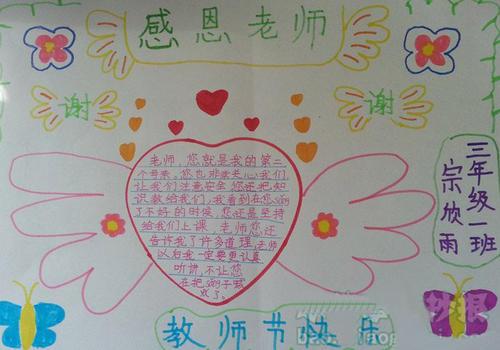 感恩老师
谢
谢
老师，您就是我的第二
个母亲。您也非常关心我们，
让我们注意安全，您还把知
识教给我们，我看到在您嗓子
了不好的时候，您还是坚持
给我们上课，老师您还
告诉我了许多道理，老师
以后我一定要更认真
听讲，不让您
在把嗓子喊
哑了。
三年级一班
宗欣雨
教师节快乐